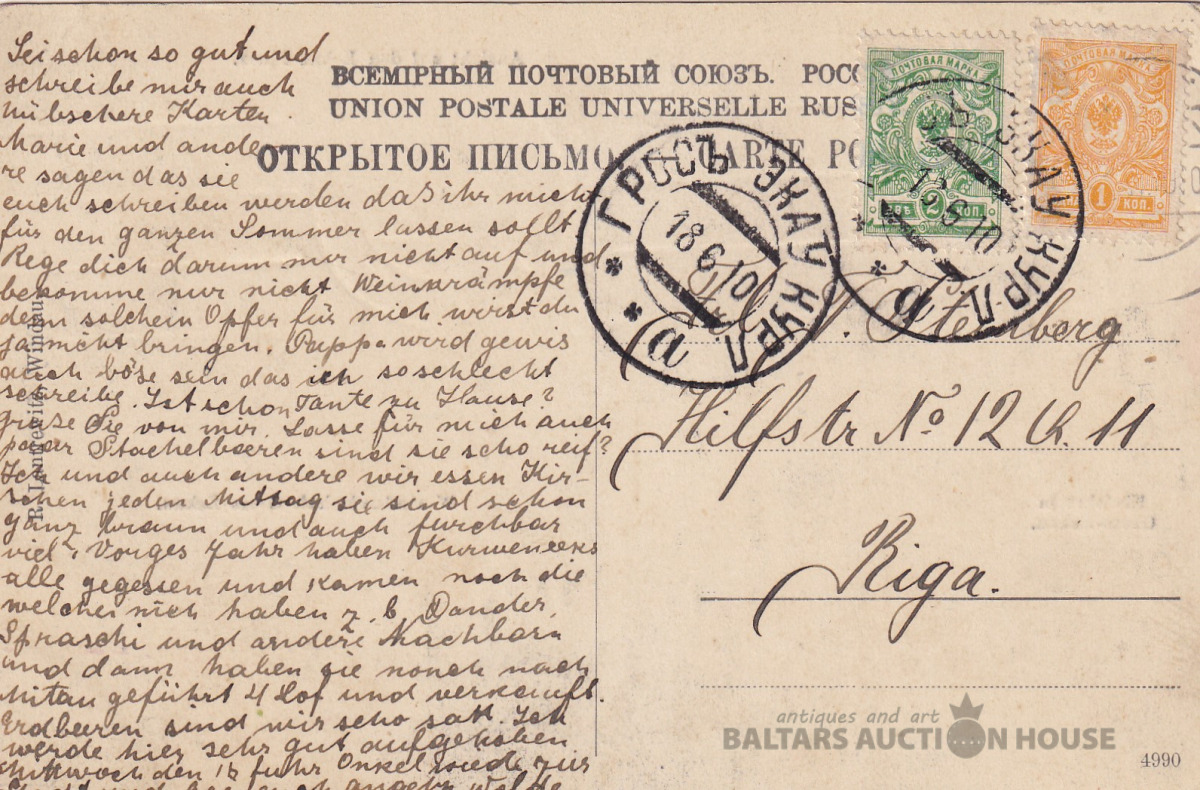 Sei schon so gut und
schreibe mir auch
hübschere Karten.
Marie und ande-
re sagen das sie
euch schreiben werden daß ihr mich
für den ganzen Sommer lassen sollt
Rege dich darum nur nicht auf und
bekomme nur nicht Weinkrämpfe
denn solchein Opfer für mich wirst du
ja nicht bringen. Pappa wird gewis
auch böse sein das ich so schlecht
schreibe. Ist schon Tante zu Hause?
grüse Sie von mir. Lasse für mich auch
paar Stachelbeeren sind sie scho reif?
Ich und auch andere wir essen Kir-
schen jeden Mittag sie sind schon
ganz braun und auch furchbar
viel. Vorges Jahr haben
alle gegessen und kamen noch die
welche nich haben z. b. Dander,
Spraschi und andere Nachbarn
und dann haben sie nonch nach
Mitau geführt 4 Lof und verkauft.
Erdbeeren sind wir scho satt. Ich
werde hier sehr gut aufgehoben
Mittwoch den fuhr Onkel wieder zur
und
ВСЕМІРНЫЙ ПОЧТОВЫЙ СОЮЗЪ. РОСС
UNION POSTALE UNIVERSELLE RUS
ОТКРЫТОЕ ПИСЬМО CARTE PO
ПОЧТОВАЯ МАРКА
2 КОП.
ПОЧТОВАЯ МАРКА
1 КОП.
ГРОССЪ ЭКАУ КУРЛ.
18 6 10
(a)
ЭКАУ КУРЛ.
18 6 10
(a)
Hilfstr No 12 Q. 11
Riga.
antiques and art
BALTARS AUCTION HOUSE
4990